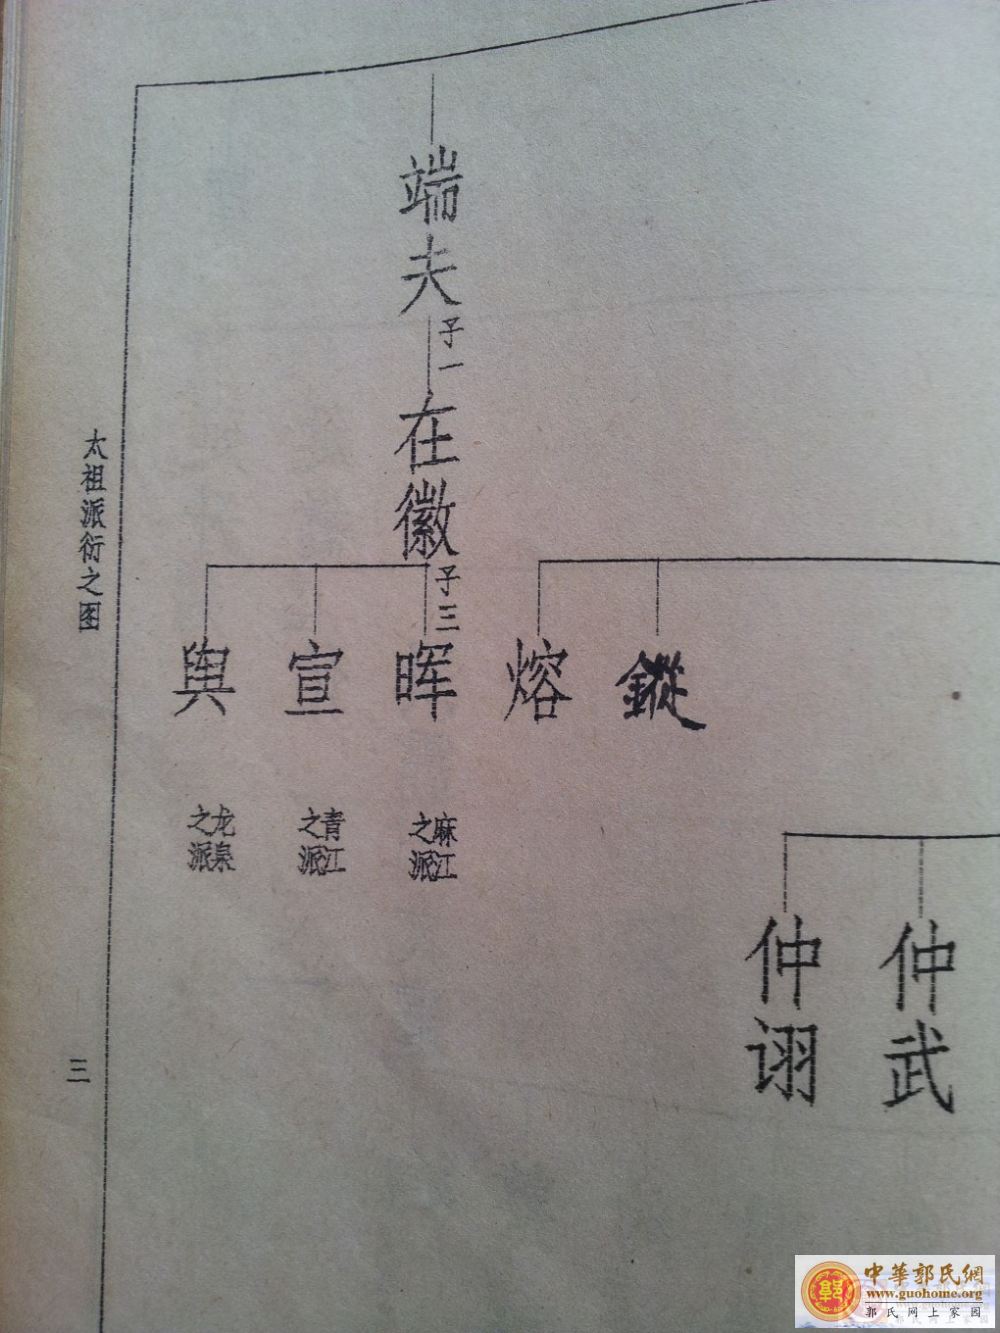 端夫
子一
在徽
子三
鏦
熔
晖
宣
舆
麻江
之派
青江
之派
龙泉
之派
仲武
仲诩
太祖派衍之图
三
中華郭氏網
www.guohome.org
郭氏网上家园